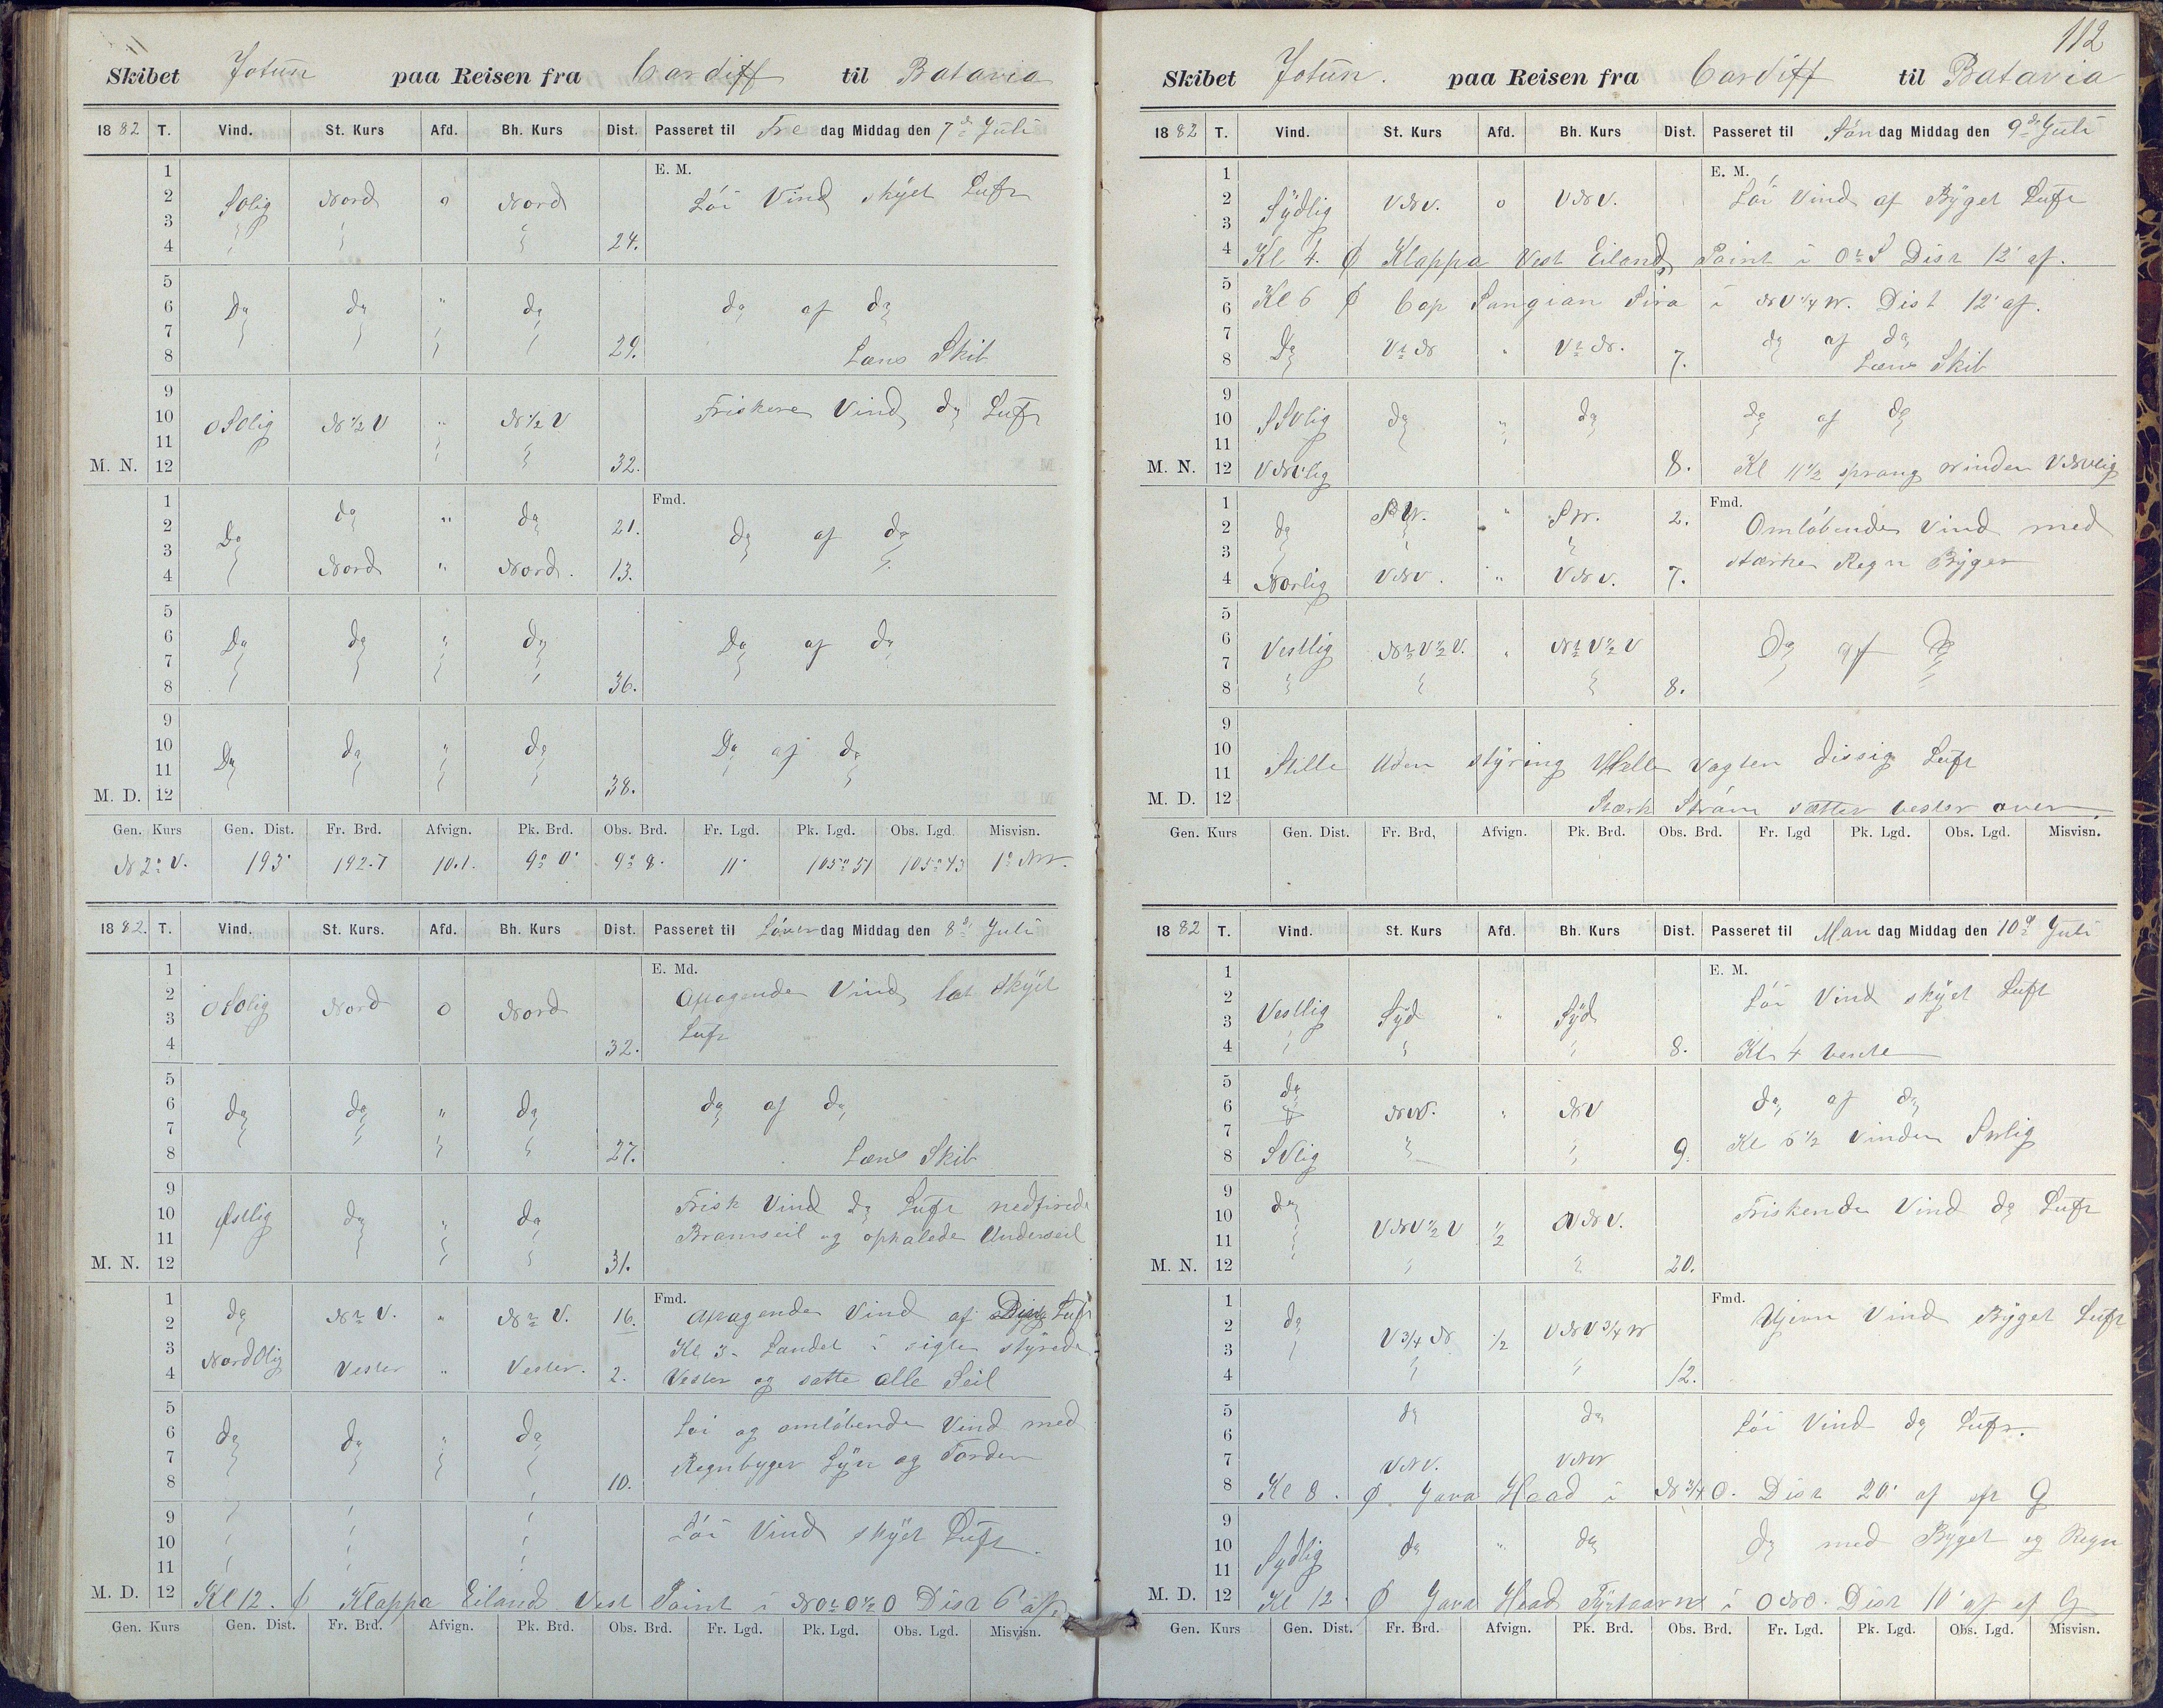 Skibet Jotun paa Reisen fra Cardiff til Batavia
1882 T. Vind. St. Kurs Afd. Bh. Kurs Dist. Passeret til Fredag Middag den 7de Juli
1 E. M.
2 SOlig Nord 0 Nord Löi Vind skÿet Luft
3
4 24.
5
6 Do do " do do af do
7
8 29. Læns Skib
9
10 OSOlig N 1/2 V " N 1/2 V Friskere Vind do Luft
11
M. N. 12 32.
1 Fmd.
2 Do do " do 21. do af do
3
4 Nord " Nord. 13.
5
6 Do do " do Do af do
7
8 36.
9
10 Do do " do Do af do
11
M. D. 12 38.
Gen. Kurs Gen. Dist. Fr. Brd. Afvign. Pk. Brd. Obs. Brd. Fr. Lgd. Pk. Lgd. Obs. Lgd. Misvisn.
N 2° V. 193' 192.7 10.1. 9° 0' 9° 8. 11' 105° 51 105° 43 1° NW.
1882. T. Vind. St. Kurs. Afd. Bh. Kurs Dist. Passeret til Löverdag Middag den 8d Juli
1 E. Md.
2 OSOlig Nord 0 Nord Aftagende Vind let Skÿet
3 Luft
4 32.
5
6 do do " do do af do
7
8 27. Læns Skib
9 Frisk Vind do Luft nedfirede
10 Østlig do " do Bramseil og ophalede Underseil
11
M. N. 12 31.
1 Fmd. Aftagende Vind af Luft
2 do N t V. " N t V. 16.
3 Kl 3 Landet i sigte stÿrede
4 NordOlig Vester " Vester. 2. Vester og satte alle Seil
5 Löi og omlöbende Vind med
6 do do " do Regnbyger Lÿn og Torden
7
8 10.
9 Löi Vind skÿet Luft.
10
11
M. D. 12 Kl 12. Klappa Eiland Vest Point i NOtO 1/2 O Dist 6' af
Gen. Kurs Gen. Dist. Fr. Brd. Afvign. Pk. Brd. Obs. Brd. Fr. Lgd. Pk. Lgd. Obs. Lgd. Misvisn.
112
Skibet Jotun. paa Reisen fra Cardiff til Batavia
1882 T. Vind. St. Kurs Afd. Bh. Kurs Dist. Passeret til Söndag Middag den 9de Juli
1 E. M.
2 Sÿdlig VNV. 0 VNV. Löi Vind af Bÿget Luft
3
4 Kl 4. Ø Klappa Vest Eiland Point i OtS Dist 12' af.
5
6 Kl 6 Ø Cap Sangian Sira i NV 1/4 W. Dist 12' af.
7
8 Do VtN " VtN. 7. do af do Læns Skib
9
10 SSVlig do " do do af do
11
M. N. 12 VNVlig 8. Kl 11 1/2 sprang vinden VNVlig
1 Fmd.
2 do SW. " SW. 2. Omlöbende Vind med
3 stærke Regn Bÿger
4 Norlig VNV. " VNV. 7.
5
6 Vestlig NtV 1/2 V. " NtV 1/2 V Do af Do
7
8 8.
9
10 Stille Uden stÿring Hele Vagten dissig Luft
11
M. D. 12 Stærk Ström sætter vester over
Gen. Kurs Gen. Dist. Fr. Brd, Afvign. Pk. Brd. Obs. Brd. Fr. Lgd Pk. Lgd. Obs. Lgd. Misvisn.
1882 T. Vind. St. Kurs Afd. Bh. Kurs Dist. Passeret til Mandag Middag den 10d Juli
1 E. M.
2 Löi Vind skÿet Luft
3 Vestlig Sÿd " Sÿd
4 8. Kl 4 vendte
5 do
6 NW. " NV do af do
7 Kl 6 1/2 Vinden SVlig
8 SVlig 9.
9
10 do VNV 1/2 V 1/2 VNV. Friskende Vind do Luft
11
M. N. 12 20.
1 Fmd. Ujevn Vind Bÿget Luft
2 do V 3/4 N 1/2 VNV 3/4 W
3
4 12.
5 do do Löi Vind do Luft.
6
7 VNV. VNW
8 Kl 8. Ø Java Head i N 3/4 O. Dist 20' af
9
10 Sydlig do " do do med Bÿget og Regn
11
M. D. 12 Kl 12. Ø Java Head Fÿrtaarn i ONO. Dist 10' af
Gen. Kurs Gen. Dist. Fr. Brd. Afvign. Pk. Brd. Obs. Brd. Fr. Lgd. Pk. Lgd. Obs. Lgd. Misvisn.